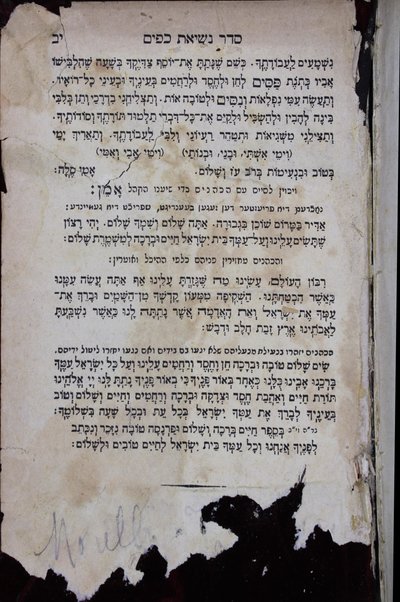 סדר נשיאת כפים יב
נִשְׁמָעִים לַעֲבוֹדָתֶךָ. כְּשֵׁם שֶׁנָּתַתָּ אֶת־יוֹסֵף צַדִּיקֶךָ בְּשָׁעָה שֶׁהִלְבִּישׁוֹ
אָבִיו כְּתֹנֶת פַּסִּים לְחֵן וּלְחֶסֶד וּלְרַחֲמִים בְּעֵינֶיךָ וּבְעֵינֵי כָל־רוֹאָיו.
וְתַעֲשֶׂה עִמִּי נִפְלָאוֹת וְנִסִּים וּלְטוֹבָה אוֹת. וְתַצְלִיחֵנִי בִּדְרָכַי וְתֵן בְּלִבִּי
בִּינָה לְהָבִין וּלְהַשְׂכִּיל וּלְקַיֵּם אֶת־כָּל־דִּבְרֵי תַלְמוּד תּוֹרָתֶךָ וְסוֹדוֹתֶיהָ.
וְתַצִּילֵנִי מִשְּׁגִיאוֹת וּתְטַהֵר רַעְיוֹנַי וְלִבִּי לַעֲבוֹדָתֶךָ. וְתַאֲרִיךְ יָמַי
(וִימֵי אִשְׁתִּי. וּבָנַי. וּבְנוֹתַי) (וִימֵי אָבִי וְאִמִּי)
בְּטוֹב וּבִנְעִימוֹת בְּרֹב עֹז וְשָׁלוֹם. אָמֵן סֶלָה:
ויכוין לסיים עם הכהנים כדי שיענו הקהל אָמֵן:
אַדִּיר בַּמָּרוֹם שׁוֹכֵן בִּגְבוּרָה. אַתָּה שָׁלוֹם וְשִׁמְךָ שָׁלוֹם. יְהִי רָצוֹן
שֶׁתָּשִׂים עָלֵינוּ וְעַל־עַמְּךָ בֵּית יִשְׂרָאֵל חַיִּים וּבְרָכָה לְמִשְׁמֶרֶת שָׁלוֹם:
והכהנים מחזירין פניהם כלפי ההיכל ואומרין:
רִבּוֹן הָעוֹלָם. עָשִׂינוּ מַה שֶּׁגָּזַרְתָּ עָלֵינוּ אַף אַתָּה עֲשֵׂה עִמָּנוּ
כַּאֲשֶׁר הִבְטַחְתָּנוּ. הַשְׁקִיפָה מִמְּעוֹן קָדְשְׁךָ מִן־הַשָּׁמַיִם וּבָרֵךְ אֶת־
עַמְּךָ אֶת יִשְׂרָאֵל וְאֵת הָאֲדָמָה אֲשֶׁר נָתַתָּה לָנוּ כַּאֲשֶׁר נִשְׁבַּעְתָּ
לַאֲבוֹתֵינוּ אֶרֶץ זָבַת חָלָב וּדְבָשׁ:
הכהנים יזהרו בנעילת מנעליהם שלא יגעו בם בידים ואם נגעו יחזרו ליטול ידיהם.
שִׂים שָׁלוֹם טוֹבָה וּבְרָכָה חֵן וָחֶסֶד וְרַחֲמִים עָלֵינוּ וְעַל כָּל יִשְׂרָאֵל עַמֶּךָ
בָּרְכֵנוּ אָבִינוּ כֻּלָּנוּ כְּאֶחָד בְּאוֹר פָּנֶיךָ כִּי בְאוֹר פָּנֶיךָ נָתַתָּ לָּנוּ יְיָ אֱלֹהֵינוּ
תּוֹרַת חַיִּים וְאַהֲבַת חֶסֶד וּצְדָקָה וּבְרָכָה וְרַחֲמִים וְחַיִּים וְשָׁלוֹם וְטוֹב
בְּעֵינֶיךָ לְבָרֵךְ אֶת עַמְּךָ יִשְׂרָאֵל בְּכָל עֵת וּבְכָל שָׁעָה בִּשְׁלוֹמֶךָ:
בְּסֵפֶר חַיִּים בְּרָכָה וְשָׁלוֹם וּפַרְנָסָה טוֹבָה נִזָּכֵר וְנִכָּתֵב
לְפָנֶיךָ אֲנַחְנוּ וְכָל עַמְּךָ בֵּית יִשְׂרָאֵל לְחַיִּים טוֹבִים וּלְשָׁלוֹם: